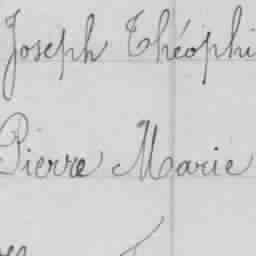 Joseph Théophi
Pierre Marie